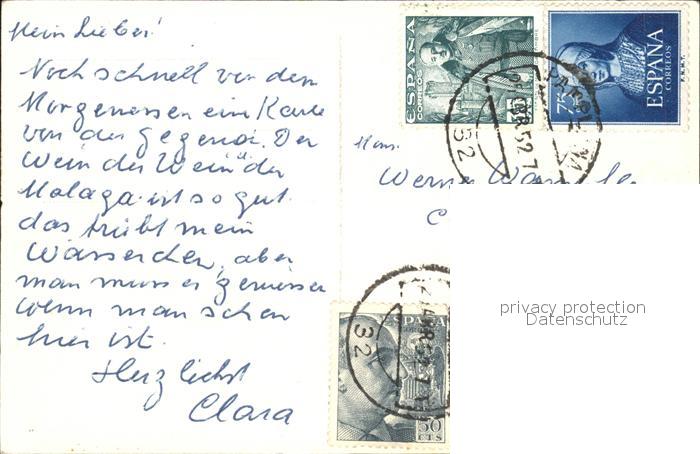 Mein Lieber!
Noch schnell vor dem
Morgenessen ein Karte
von der Gegend. Der
Wein der Wein der
Malaga ist so gut
das trübt mein
Wässerchen, aber
man muss es geniessen
wenn man schon
hier ist.
Herzlichst
Clara
Mons.
Werner
ESPAÑA
CORREOS
ESPAÑA
CORREOS
75
F.N.M.T.
52
32
ESPAÑA
50
CTS
privacy protection
Datenschutz